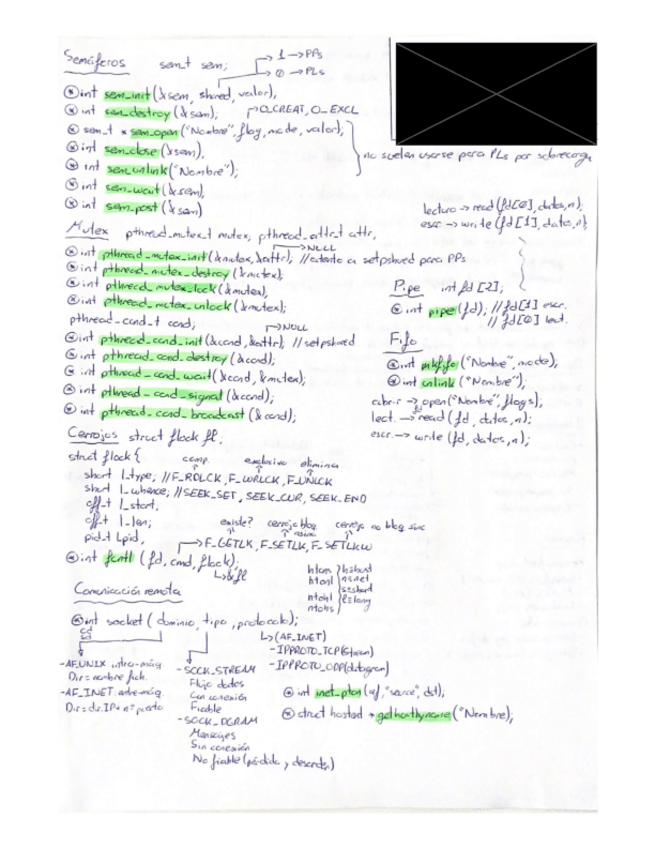 Semáforos sem_t sem;
1 → PPs
0 → PLs
int sem_init(&sem, shared, valor);
int sem_destroy(&sem);
O_CREAT, O_EXCL
sem_t * sem_open("Nombre", flag, mode, valor);
int sem_close(&sem);
int sem_unlink("Nombre");
int sem_wait(&sem);
int sem_post(&sem)
no suelen usarse para PLs por sobrecarga
Mutex pthread_mutex_t mutex, pthread_attr_t attr,
→ NULL
int pthread_mutex_init(&mutex, &attr); //atento a setpshared para PPs
int pthread_mutex_destroy(&mutex);
int pthread_mutex_lock(&mutex);
int pthread_mutex_unlock(&mutex);
pthread_cond_t cond;
→ NULL
int pthread_cond_init(&cond, &attr); // setpshared
int pthread_cond_destroy(&cond);
int pthread_cond_wait(&cond, &mutex);
int pthread_cond_signal(&cond);
int pthread_cond_broadcast(&cond);
lectura → read(fd[0], datos, n);
escr. → write(fd[1], datos, n);
Pipe int fd[2];
int pipe(fd); // fd[1] escr.
// fd[0] lect.
Fifo
int mkfifo("Nombre", mode);
int unlink("Nombre");
abrir → open("Nombre", flags);
fd
lect. → read(fd, datos, n);
escr. → write(fd, datos, n);
Cerrojos struct flock fl;
struct flock {
comp. exclusivo elimina
short l_type; // F_RDLCK, F_WRLCK, F_UNLCK
short l_whence; // SEEK_SET, SEEK_CUR, SEEK_END
off_t l_start;
off_t l_len;
pid_t l_pid;
existe? cerrojo bloq. cerrojo no bloq.
→ F_GETLK, F_SETLK, F_SETLKW
int fcntl(fd, cmd, flock);
→ &fl
htons h=host
htonl n=net
s=short
ntohl l=long
ntohs
Comunicación remota
int socket(dominio, tipo, protocolo);
sd
-AF_UNIX intra-máq.
Dir = nombre fich.
-AF_INET
Dir = dir.IP + nº puerto
-SOCK_STREAM
Flujo datos
Con conexión
Fiable
-SOCK_DGRAM
Mensajes
Sin conexión
No fiable (pérdida y desorden)
→ (AF_INET)
-IPPROTO_TCP(stream)
-IPPROTO_UDP(datagram)
int inet_pton(af, "source", dst);
struct hostend * gethostbyname("Nombre");